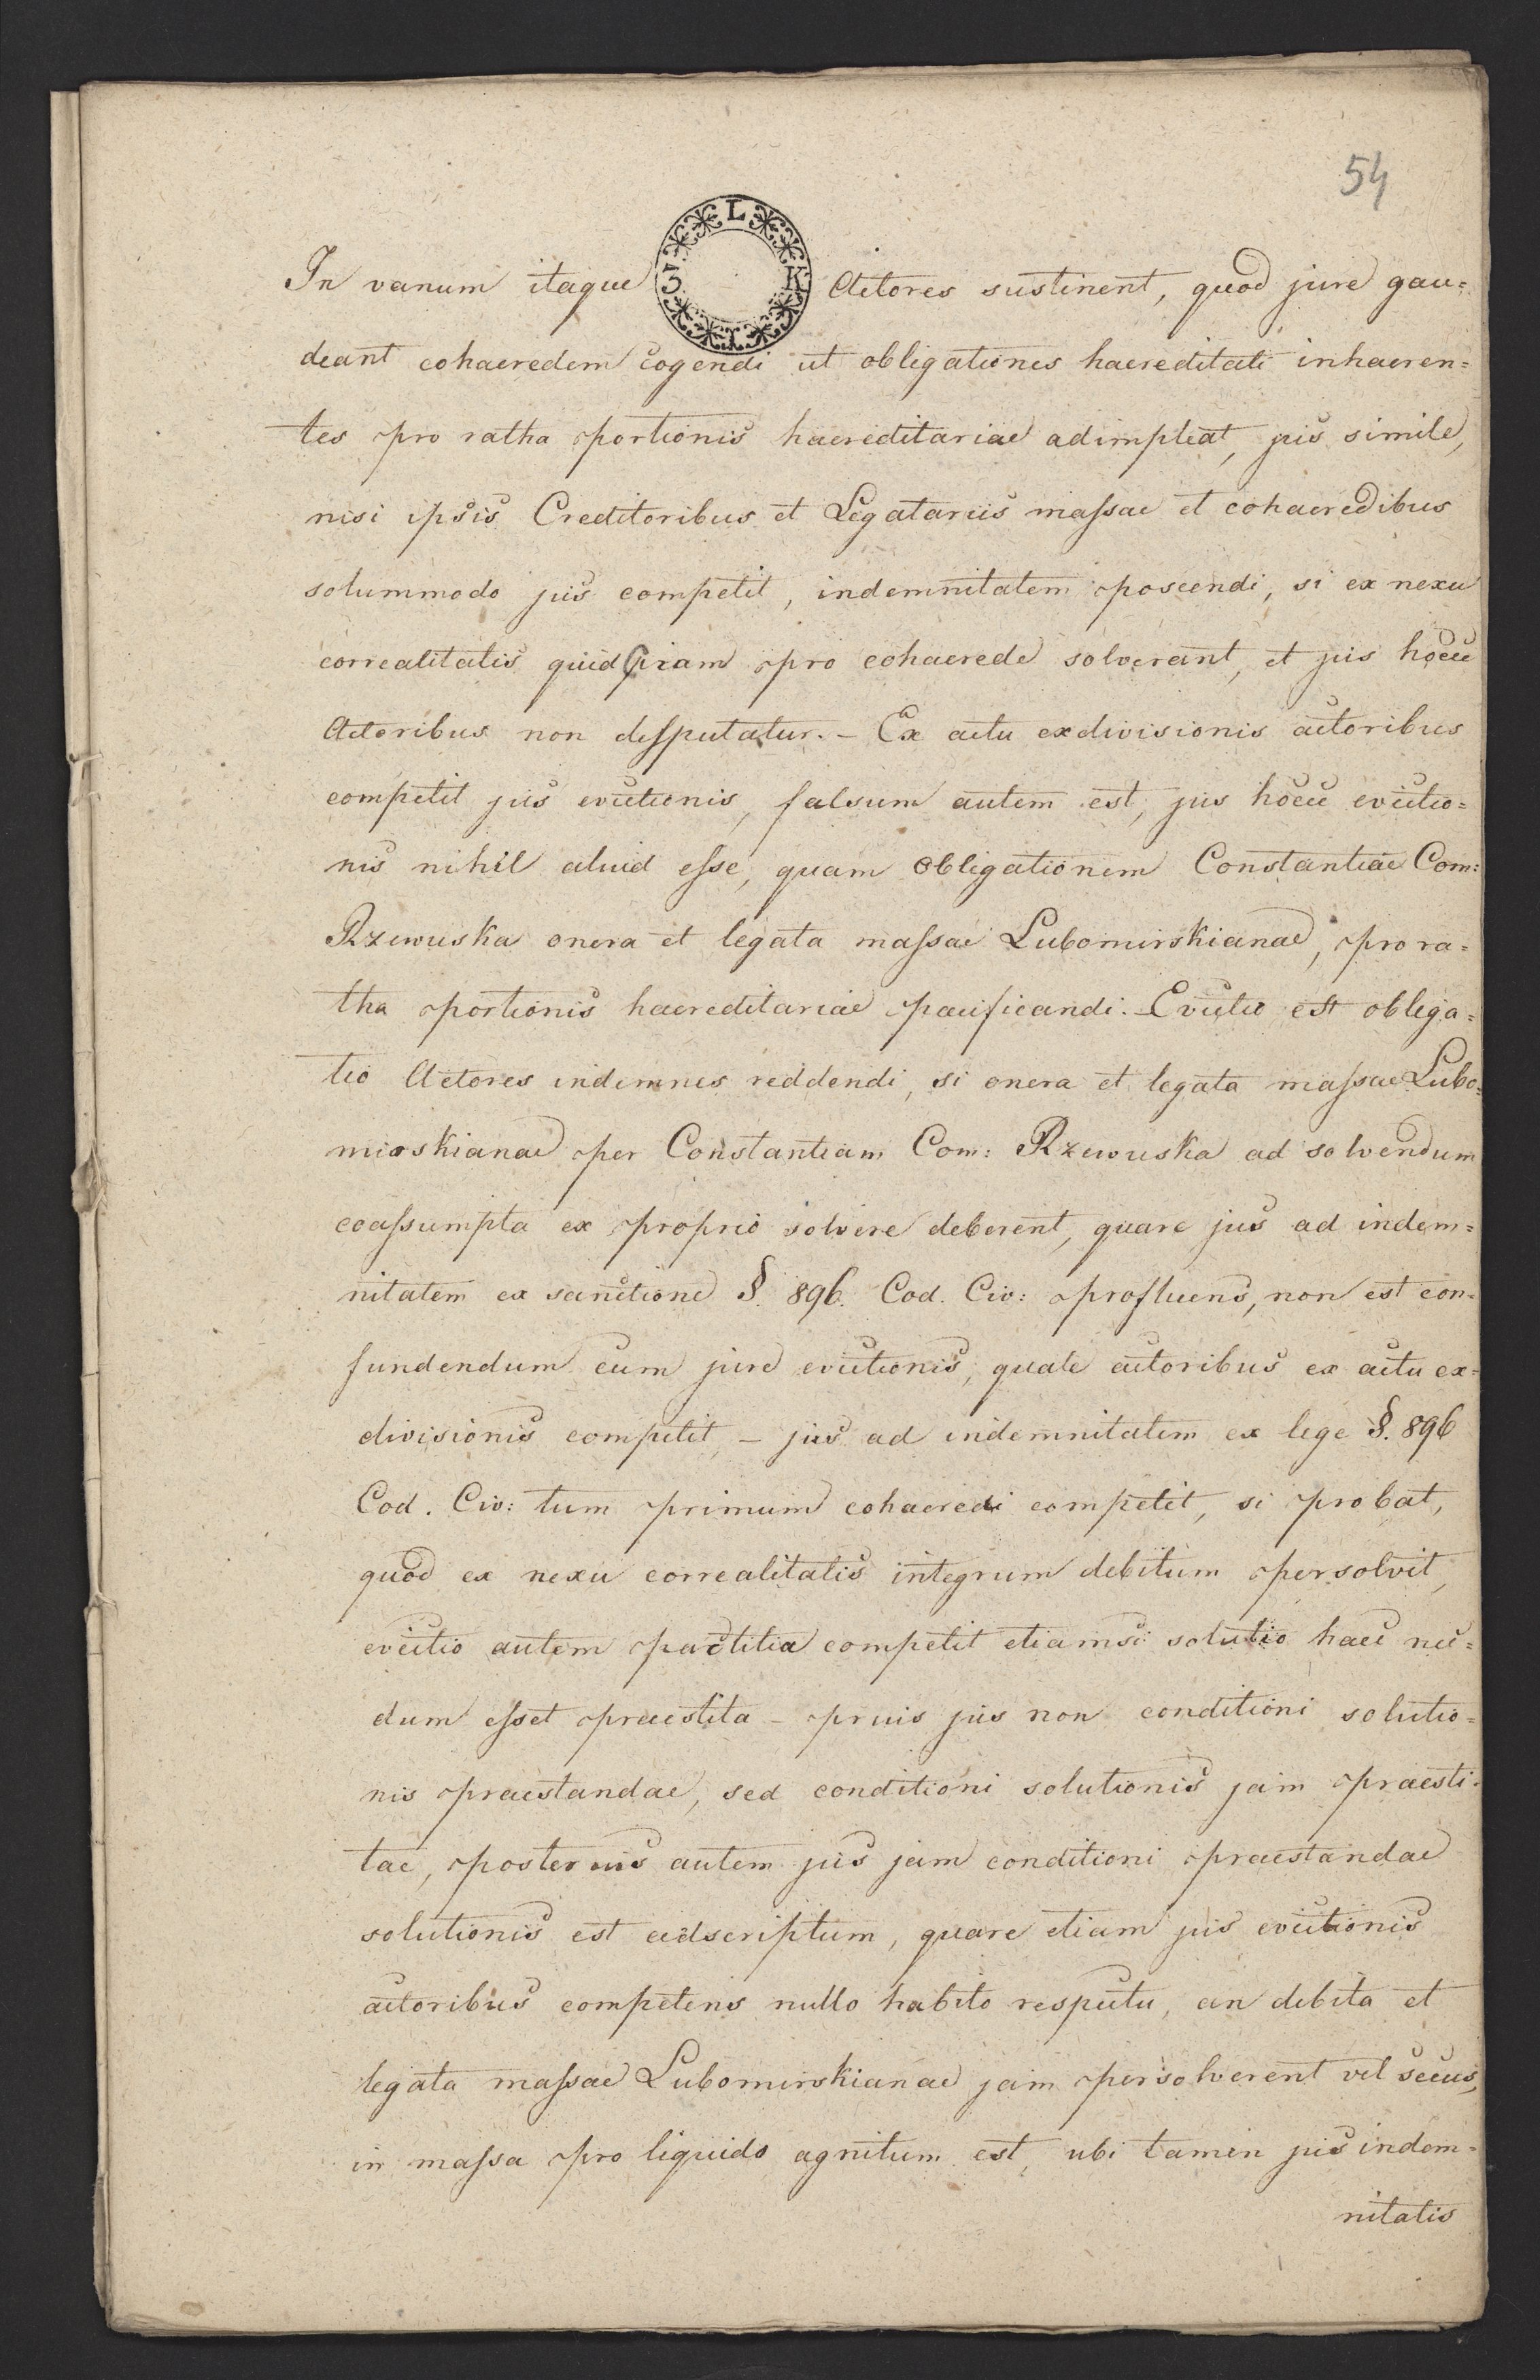 54
L
3 K
In vanum itaque Actores sustinent, quod jure gau=
deant cohaeredem cogendi ut obligationes haereditati inhaeren=
tes pro ratha portionis haereditariae adimpleat, jus simile,
nisi ipsis Creditoribus et Legatariis massae et cohaeredibus
solummodo jus competit, indemnitatem poscendi, si ex nexu
correalitatis quidpiam pro cohaerede solverant, et jus hocce
Actoribus non disputatur. – Ex actu exdivisionis actoribus
competit jus evictionis, falsum autem est, jus hocce evictio=
nis nihil aliud esse, quam obligationem Constantiae Com:
Rzewuska onera et legata massae Lubomirskianae, pro ra=
tha portionis haereditariae pacificandi. – Evictio est obliga=
tio Actores indemnes reddendi, si onera et legata massae Lubo=
mirskianae per Constantiam Com: Rzewuska ad solvendum
coassumpta ex proprio solvere deberent, quare jus ad indem=
nitatem ex sanctione §. 896. Cod. Civ: profluens, non est con=
fundendum cum jure evictionis, quale actoribus ex actu ex=
divisionis competit – jus ad indemnitatem ex lege §. 896
Cod. Civ: tum primum cohaeredi competit, si probat,
quod ex nexu correalitatis integrum debitum persolvit,
evictio autem pactitia competit etiamsi solutio haec nec=
dum esset praestita – prius jus non conditioni solutio=
nis praestandae, sed conditioni solutionis jam praesti=
tae, posterius autem jus jam conditioni praestandae
solutionis est adscriptum, quare etiam jus evictionis
actoribus competens nullo habito respectu, an debita et
legata massae Lubomirskianae jam persolverent vel secus,
in massa pro liquido agnitum est, ubi tamen jus indem=
nitatis